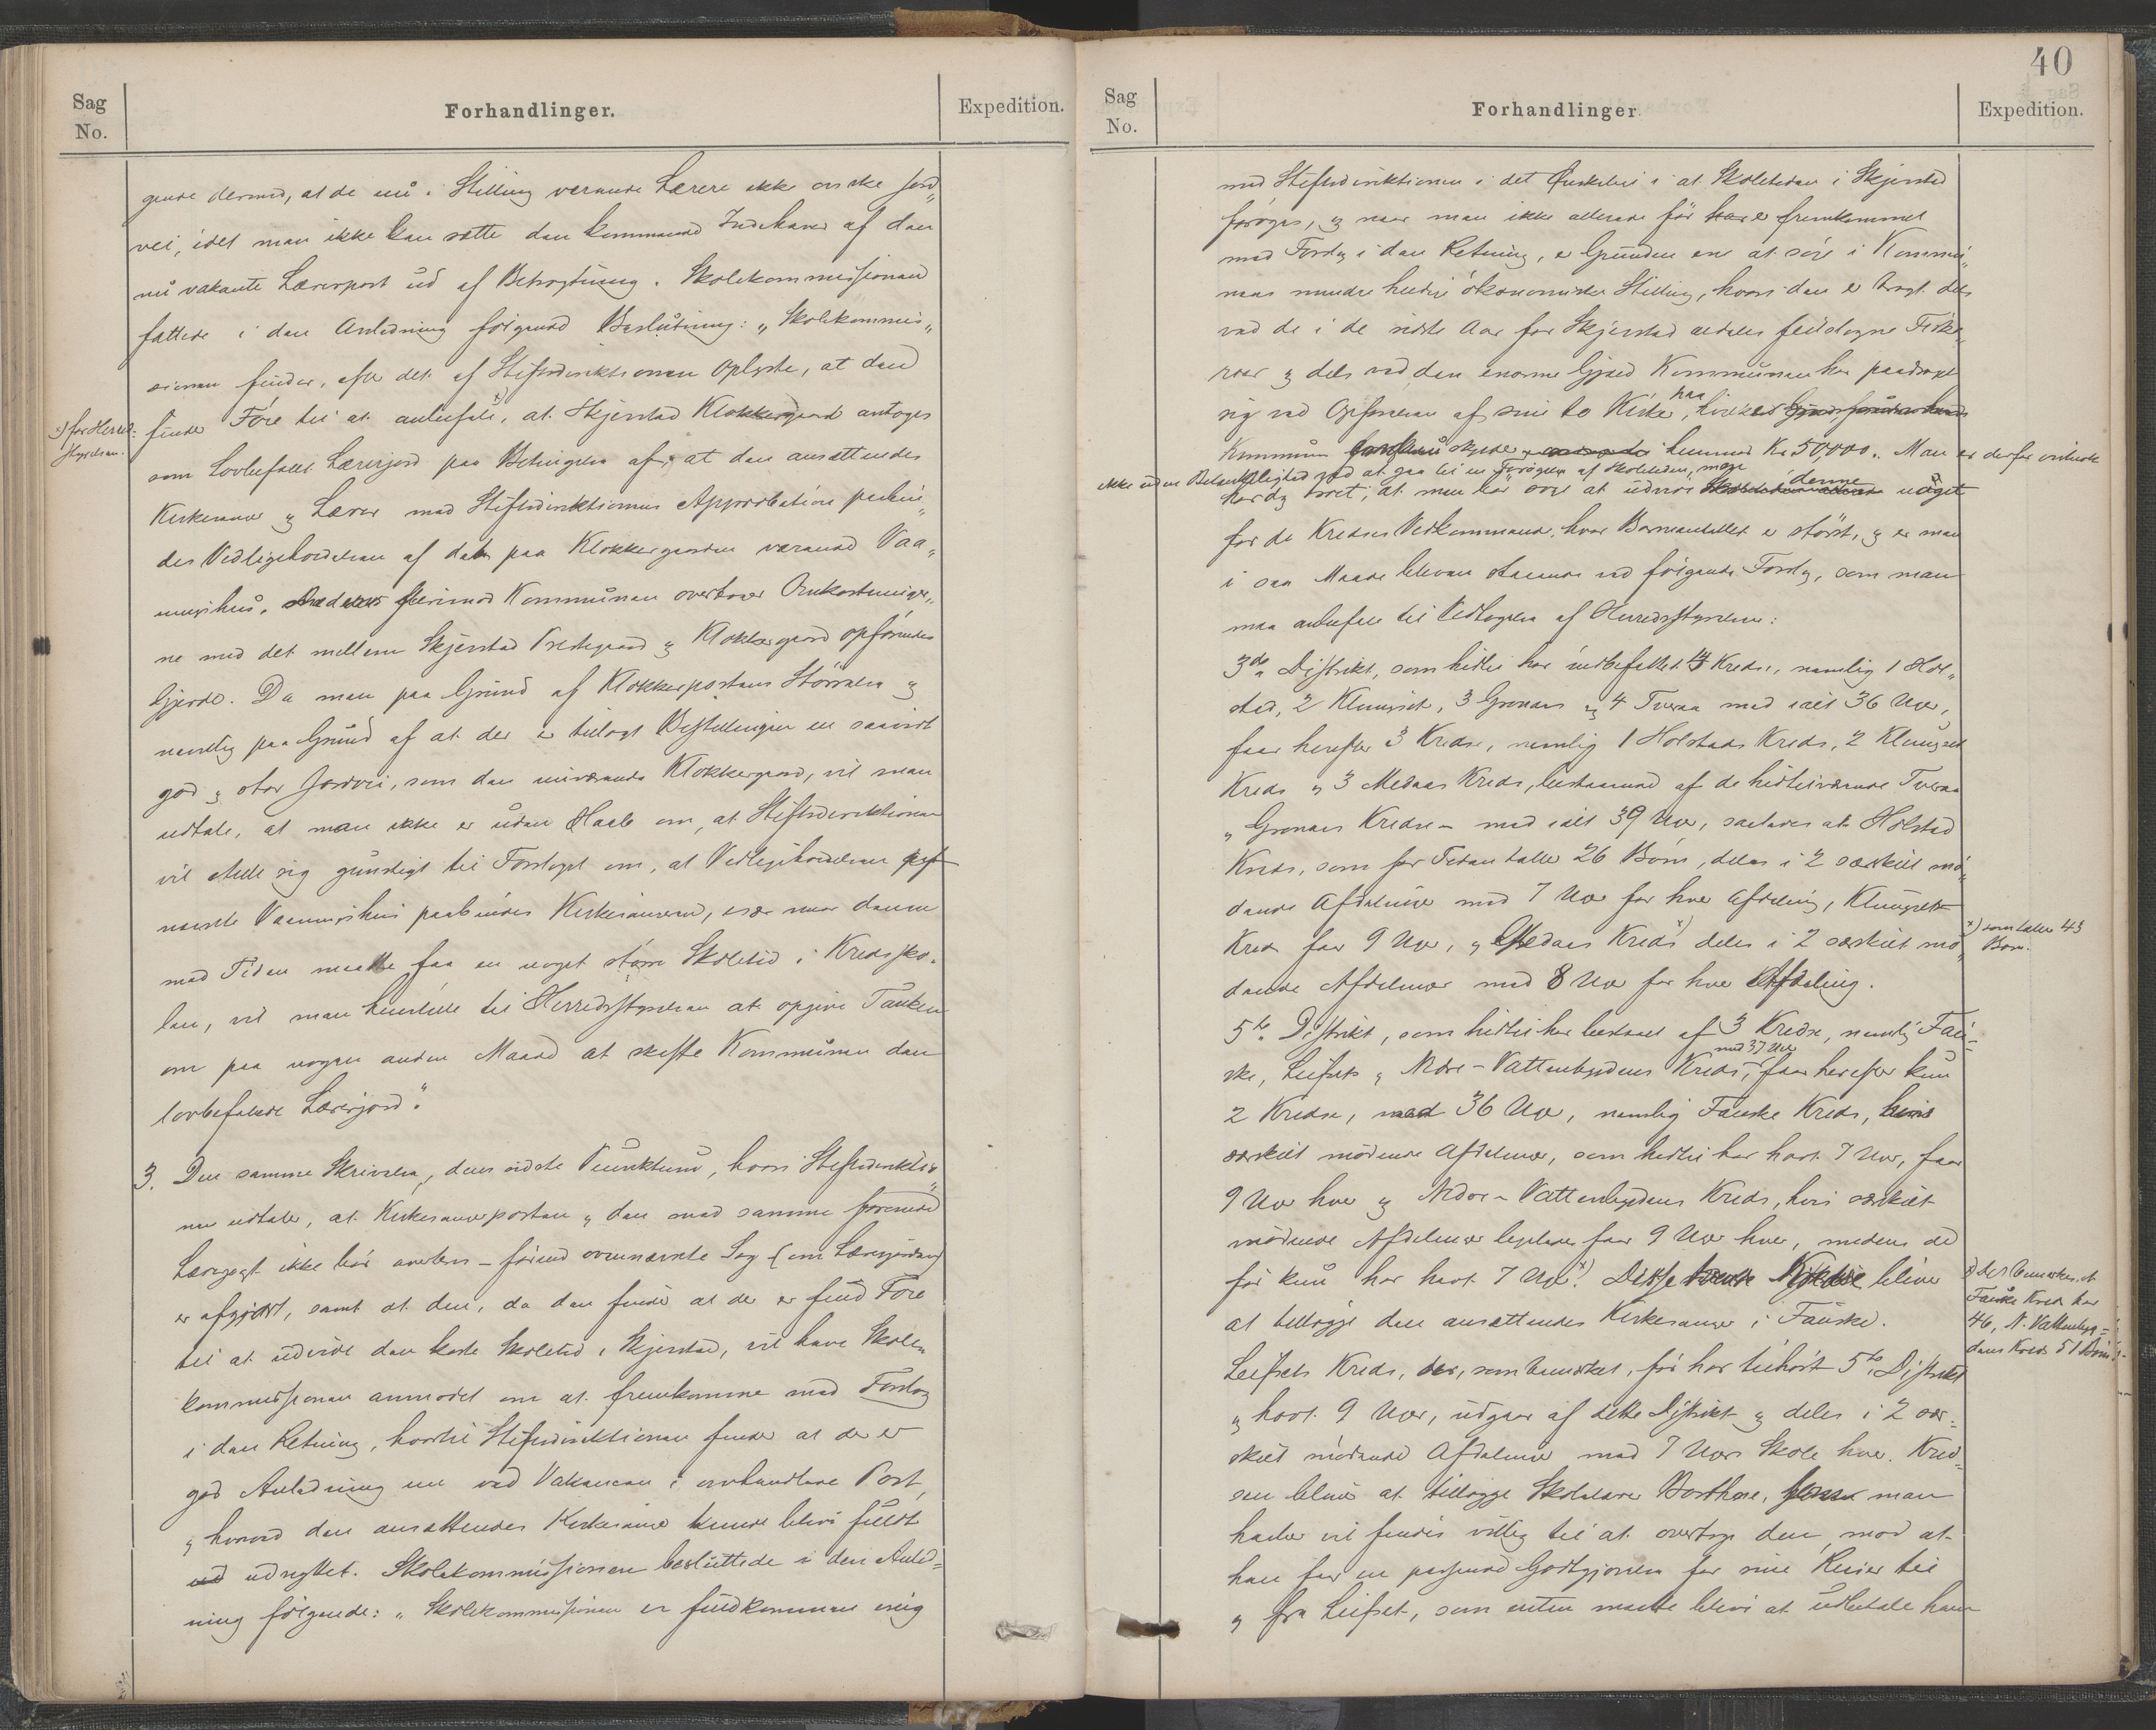 Sag
No.
Forhandlinger.
Expedition.
gende dermed, at de nu i Stilling værende Lærere ikke önske Jord„
vei, idet man ikke kan sætte den kommende Indehaver af den
nu vakante Lærerpost ud af Betragtning. Skolekommissionen
fattede i den Anledning følgende Beslutning: „Skolekommis„
sionen finder, efter det af Stiftsdirektionen Oplyste, at den
finder Föie til at anbefale x), at Skjerstad Klokkergaard antages
x) for Herreds-
styrelsen.
som lovbefalet Lærerjord paa Betingelse af, at den ansættendes
Kirkesanger og Lærer med Stiftsdirektionens Approbation paalæg„
des Vedligeholdelsen af det paa Klokkergaarden værende Vaa„
ningshus, hvorimod Kommunen overtager Omkostninger„
ne med det mellem Skjerstad Prestegaard og Klokkergaard opförendes
Gjerde. Da man paa Grund af Klokkerpostens Störrelse og
navnlig paa Grund af at der er tillagt Bestillingen en saavidt
god og stor Jordvei, som den nuværende Klokkergaard, vil man
udtale, at man ikke er uden Haab om, at Stiftsdirektionen
vil stille sig gunstigt til Forslaget om, at Vedligeholdelsen af
nævnte Vaaningshus paabindes Kirkesangeren, især naar denne
med Tiden maatte faa en noget större Skoletid i Kredssko„
len, vil man henstille til Herredsstyrelsen at opgive Tanken
om paa nogen anden Maade at skaffe Kommunen den
lovbefalede Lærerjord“.
3. Den samme Skrivelse, dens sidste Punktum, hvori Stiftsdirektio„
nen udtaler, at Kirkesangerposten og den med samme forenede
Lærerpost ikke bör averteres – förend ovennævnte Sag (om Lærerjorden)
er afgjort, samt at den, da den finder at der er fuld Föie
til at udvide den korte Skoletid i Skjerstad, vil have Skole„
kommissionen anmodet om at fremkomme med Forslag
i den Retning, hvortil Stiftsdirektionen finder at der er
god Anledning nu ved Vakancen i omhandlede Post,
og hvorved den ansættendes Kirkesanger kunde blive fuldt
ud udnyttet. Skolekommissionen besluttede i den Anled=
ning følgende: „Skolekommissionen er fuldkommen enig
40
Sag
No.
Forhandlinger.
Expedition.
med Stiftsdirektionen i det Önskelige i at Skoletiden i Skjerstad
forøges, og naar man ikke allerede för er fremkommet
med Forslag i den Retning, er Grunden ene at söge i Kommu„
nens mindre heldige ökonomiske Stilling, hvori den er bragt dels
ved de i de sidste Aar for Skjerstad aldeles feilslagne Fiske„
rier og dels ved den enorme Gjæld Kommunen har paadraget
sig ved Opförelsen af sine to Kirker, paa hvilke
Kommunen skylder henimod Kr 50,000. Man er derfor virkelig
ikke uden Betænkelighed ved at gaa til en Forögelse af Skoletiden, men
har dog troet, at man bör söge at udvide denne noget
for de Kredses Vedkommende, hvor Barneantallet er störst, og er man
i saa Maade bleven staaende ved følgende Forslag, som man
maa anbefale til Vedtagelse af Herredsstyrelsen:
3die Distrikt, som hidtil har indbefattet 4 Kredse, nemlig 1 Hol„
stad, 2 Klungset, 3 Grönaas og 4 Tveraa med ialt 36 Uger,
faar herefter 3 Kredse, nemlig 1 Holstads Kreds, 2 Klungset
Kreds og 3 Medaas Kreds, bestaaende af de hidtilværende Tveraa
og Grönaas Kredse – med ialt 39 Uger, saaledes at Holstad
Kreds, som for Tiden tæller 26 Börn, deles i 2 særskilt mö„
dende Afdelinger med 7 Uger for hver Afdeling, Klungset
Kreds faar 9 Uger, og Medaas Kreds x) deles i 2 særskilt mö„
x) som tæller 43
Börn.
dende Afdelinger med 8 Uger for hver Afdeling.
5te Distrikt, som hidtil har bestaaet af 3 Kredse, nemlig Fau=
ske, Leifset og Nedre-Vattenbygdens Kreds, med 37 Uger faar herefter kun
2 Kredse, med 36 Uger, nemlig Fauske Kreds, hvis
særskilt mödende Afdelinger, som hidtil har havt 7 Uger, faar
9 Uger hver og Nedre-Vattenbygdens Kreds, hvis særskilt
mödende Afdelinger ligeledes faar 9 Uger hver, medens de
för kun har havt 7 Uger x). Disse Kredse bliver
x) der bemærkes, at
Fauske Kreds har
46, N. Vattenbyg=
dens Kreds 51 Börn.
at tillægge den ansættendes Kirkesanger i Fauske.
Leifsets Kreds, der, som bemærket, för har tilhört 5te Distrikt
og havt 9 Uger, udgaar af dette Distrikt og deles i 2 sær=
skilt mödende Afdelinger med 7 Ugers Skole hver. Kred=
sen bliver at tillægge Skolelærer Barthase, som man
haaber vil findes villig til at overtage den, mod at
han faar en passende Godtgjörelse for sine Reiser til
og fra Leifset, som enten maatte blive at udbetale ham